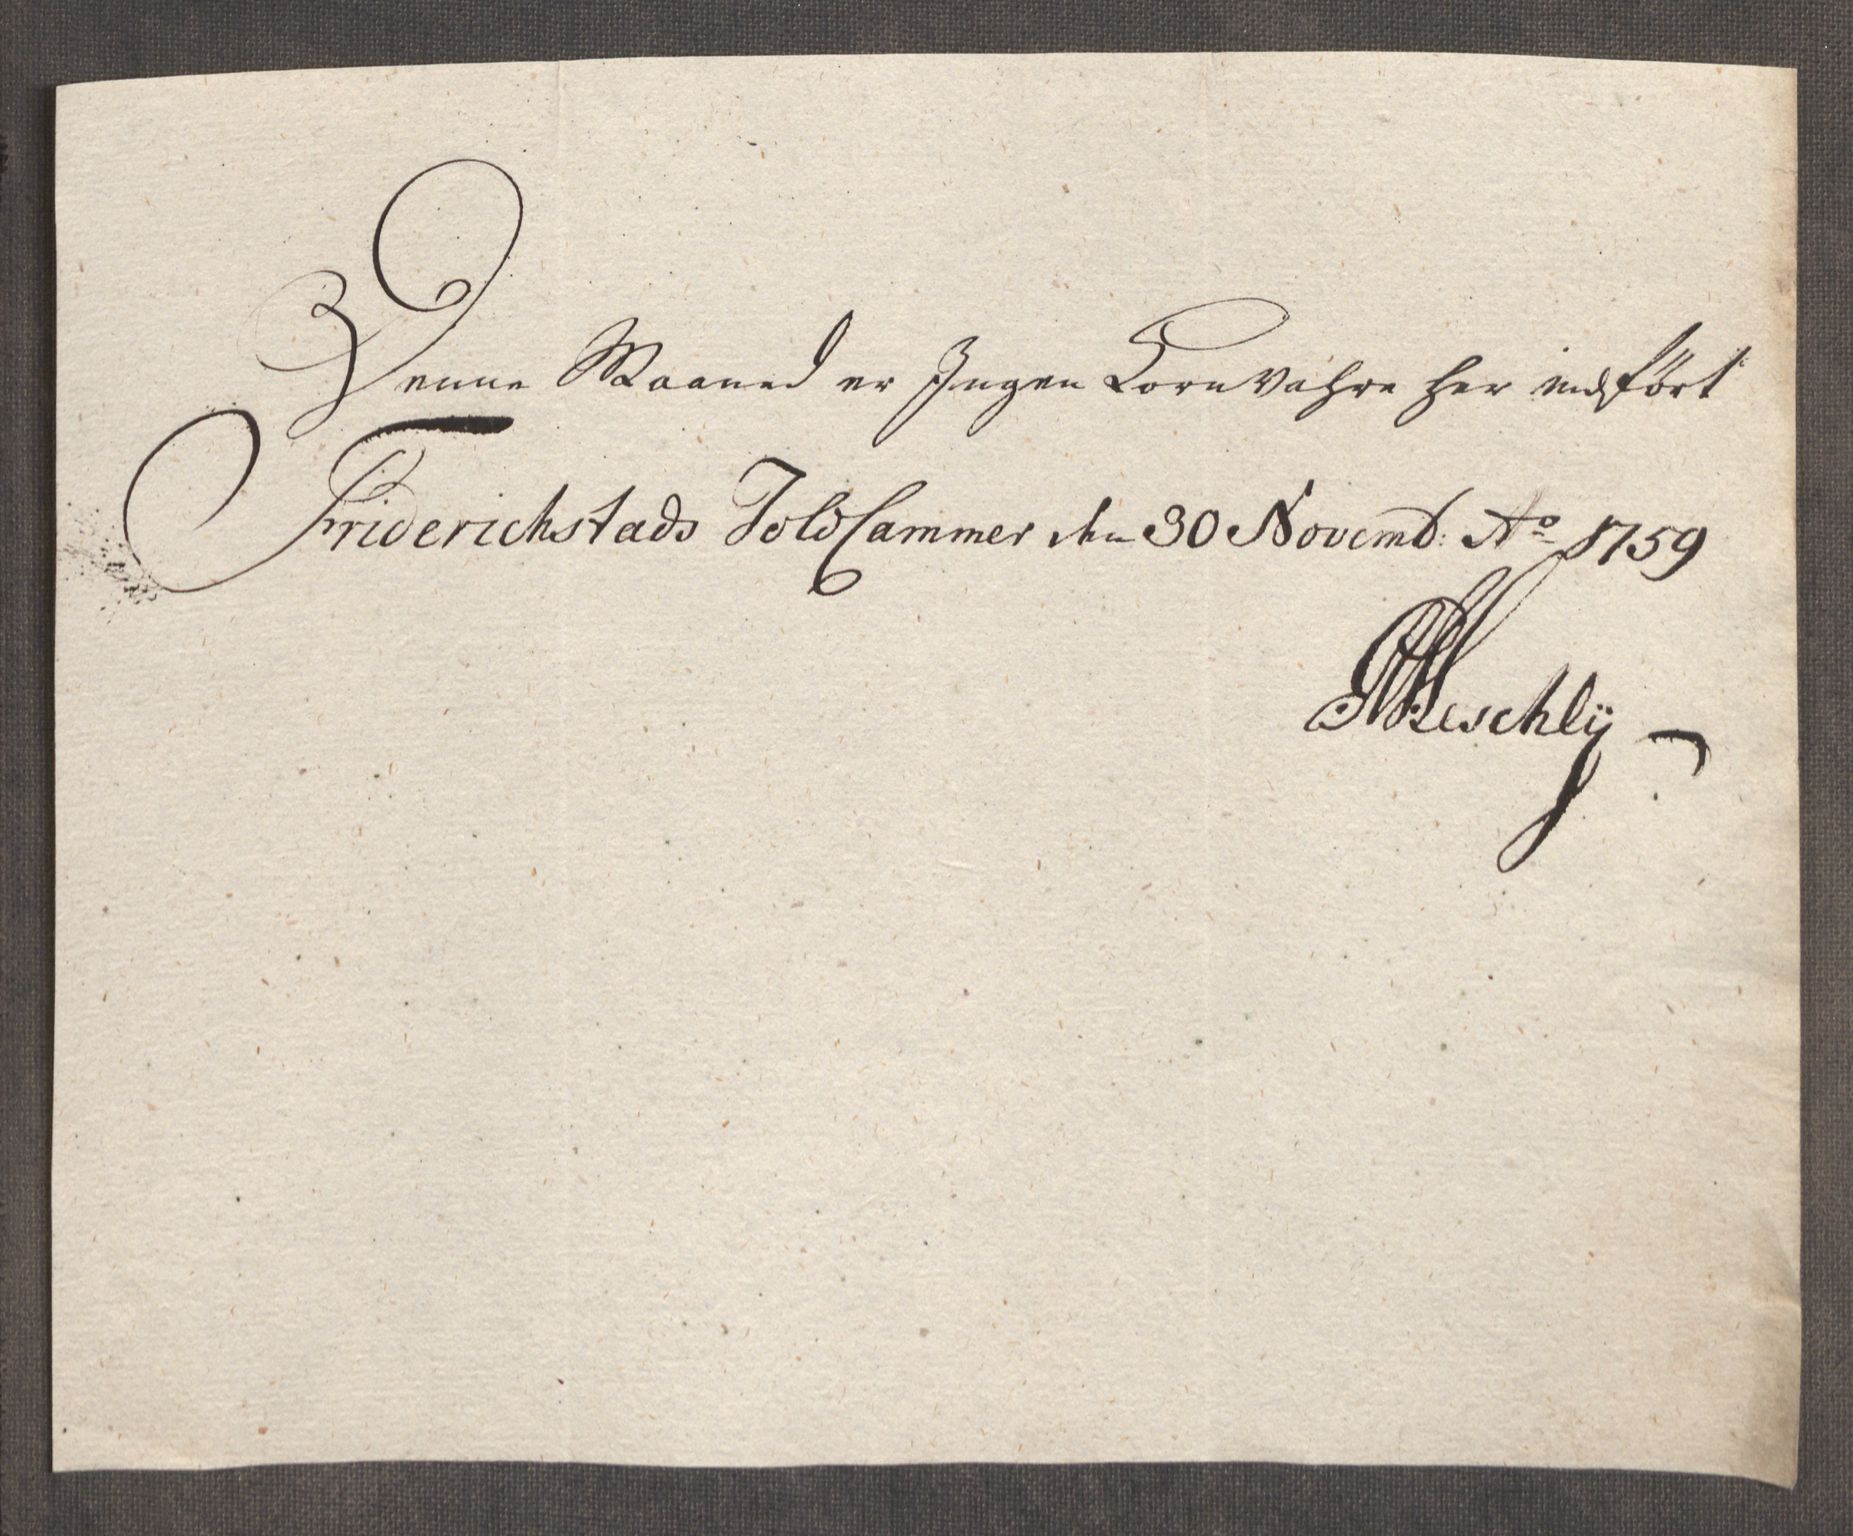 Denne Maaned er Ingen Kornvahre her indført
Friderichstads ToldCammer den 30 Novemb: Aº 1759